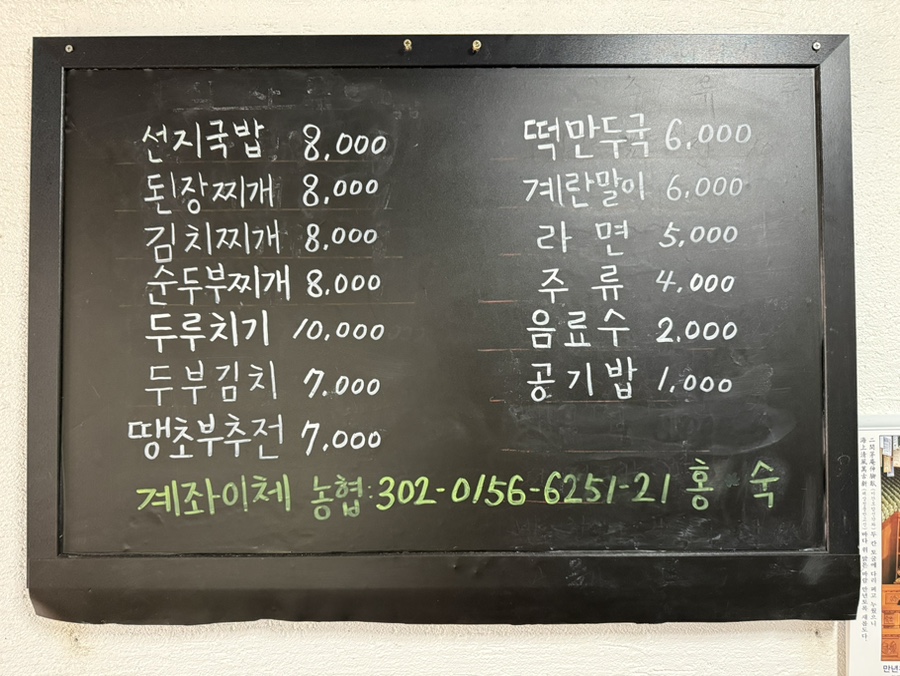 선지국밥 8,000
된장찌개 8,000
김치찌개 8,000
순두부찌개 8,000
두루치기 10,000
두부김치 7.000
땡초부추전 7,000
떡만두국 6,000
계란말이 6,000
라 면 5,000
주 류 4,000
음료수 2.000
공기밥 1,000
계좌이체 농협:302-0156-6251-21 홍 숙
만년